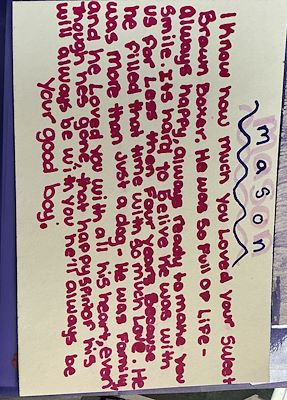 mason
I Know how much you Loved your Sweet
Brown Boxer. He was so full of Life-
always happy, always ready to make you
Smile. Its hard to belive He was with
us for Less then four Years Because
he filled that time with so much Love. He
was more than Just a dog- He was Family
and he Loved you with all his heart, even
though he's gone, that happy senor his
will always be with you he'll always be
your good boy.